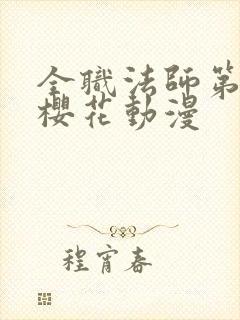 全職法師第
櫻花動漫
程宵春